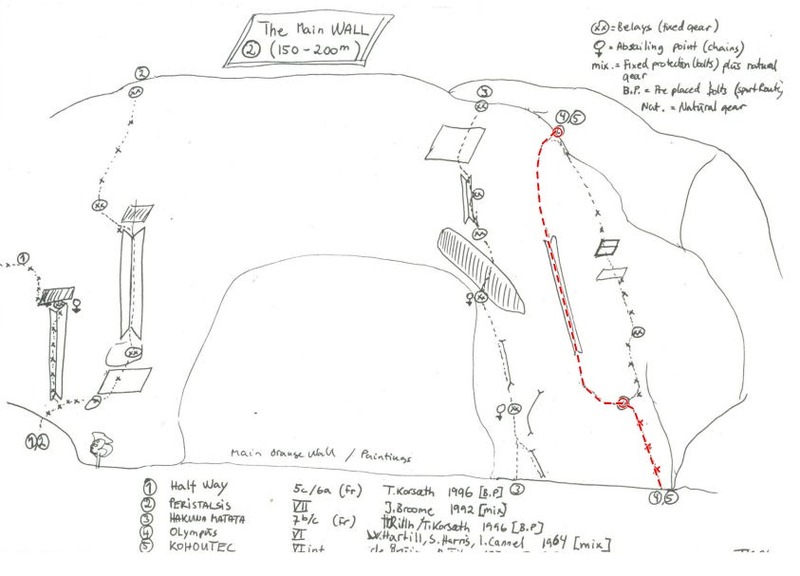 The Main WALL
② (150-200m)
(xx) = Belays (fixed gear)
= Abseiling point (chains)
mix. = Fixed protection (bolts) plus natural
gear
B.P. = Pre placed bolts (sport Route)
Nat. = Natural gear
②
③
④,⑤
①
①,②
Main orange Wall / Paintings
③
④,⑤
① Half Way 5c/6a (Fr) T. Korsath 1996 [B.P]
② PERISTALSIS VII J. Broome 1992 [mix]
③ HAKUNA MATATA 7b/c (Fr) T. Korsath 1996 [B.P]
④ OLYMPUS VI Hartill, S. Harris, I. Cannel 1964 [mix]
⑤ KOHOUTEC VI int